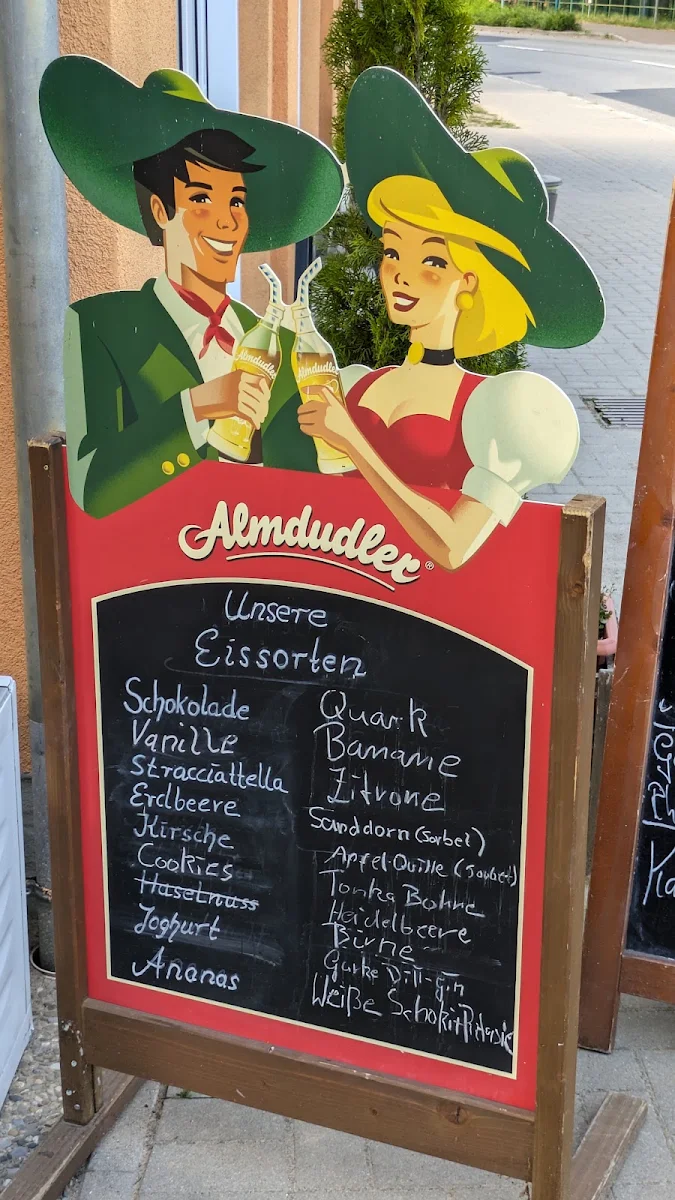 Almdudler
Almdudler
Almdudler®
Unsere
Eissorten
Schokolade
Vanille
Stracciattella
Erdbeere
Kirsche
Cookies
Haselnuss
Joghurt
Ananas
Quark
Banane
Zitrone
Sanddorn (Sorbet)
Apfel-Quitte (Sorbet)
Tonka Bohne
Heidelbeere
Birne
Gurke Dill-gin
Weiße Schoki